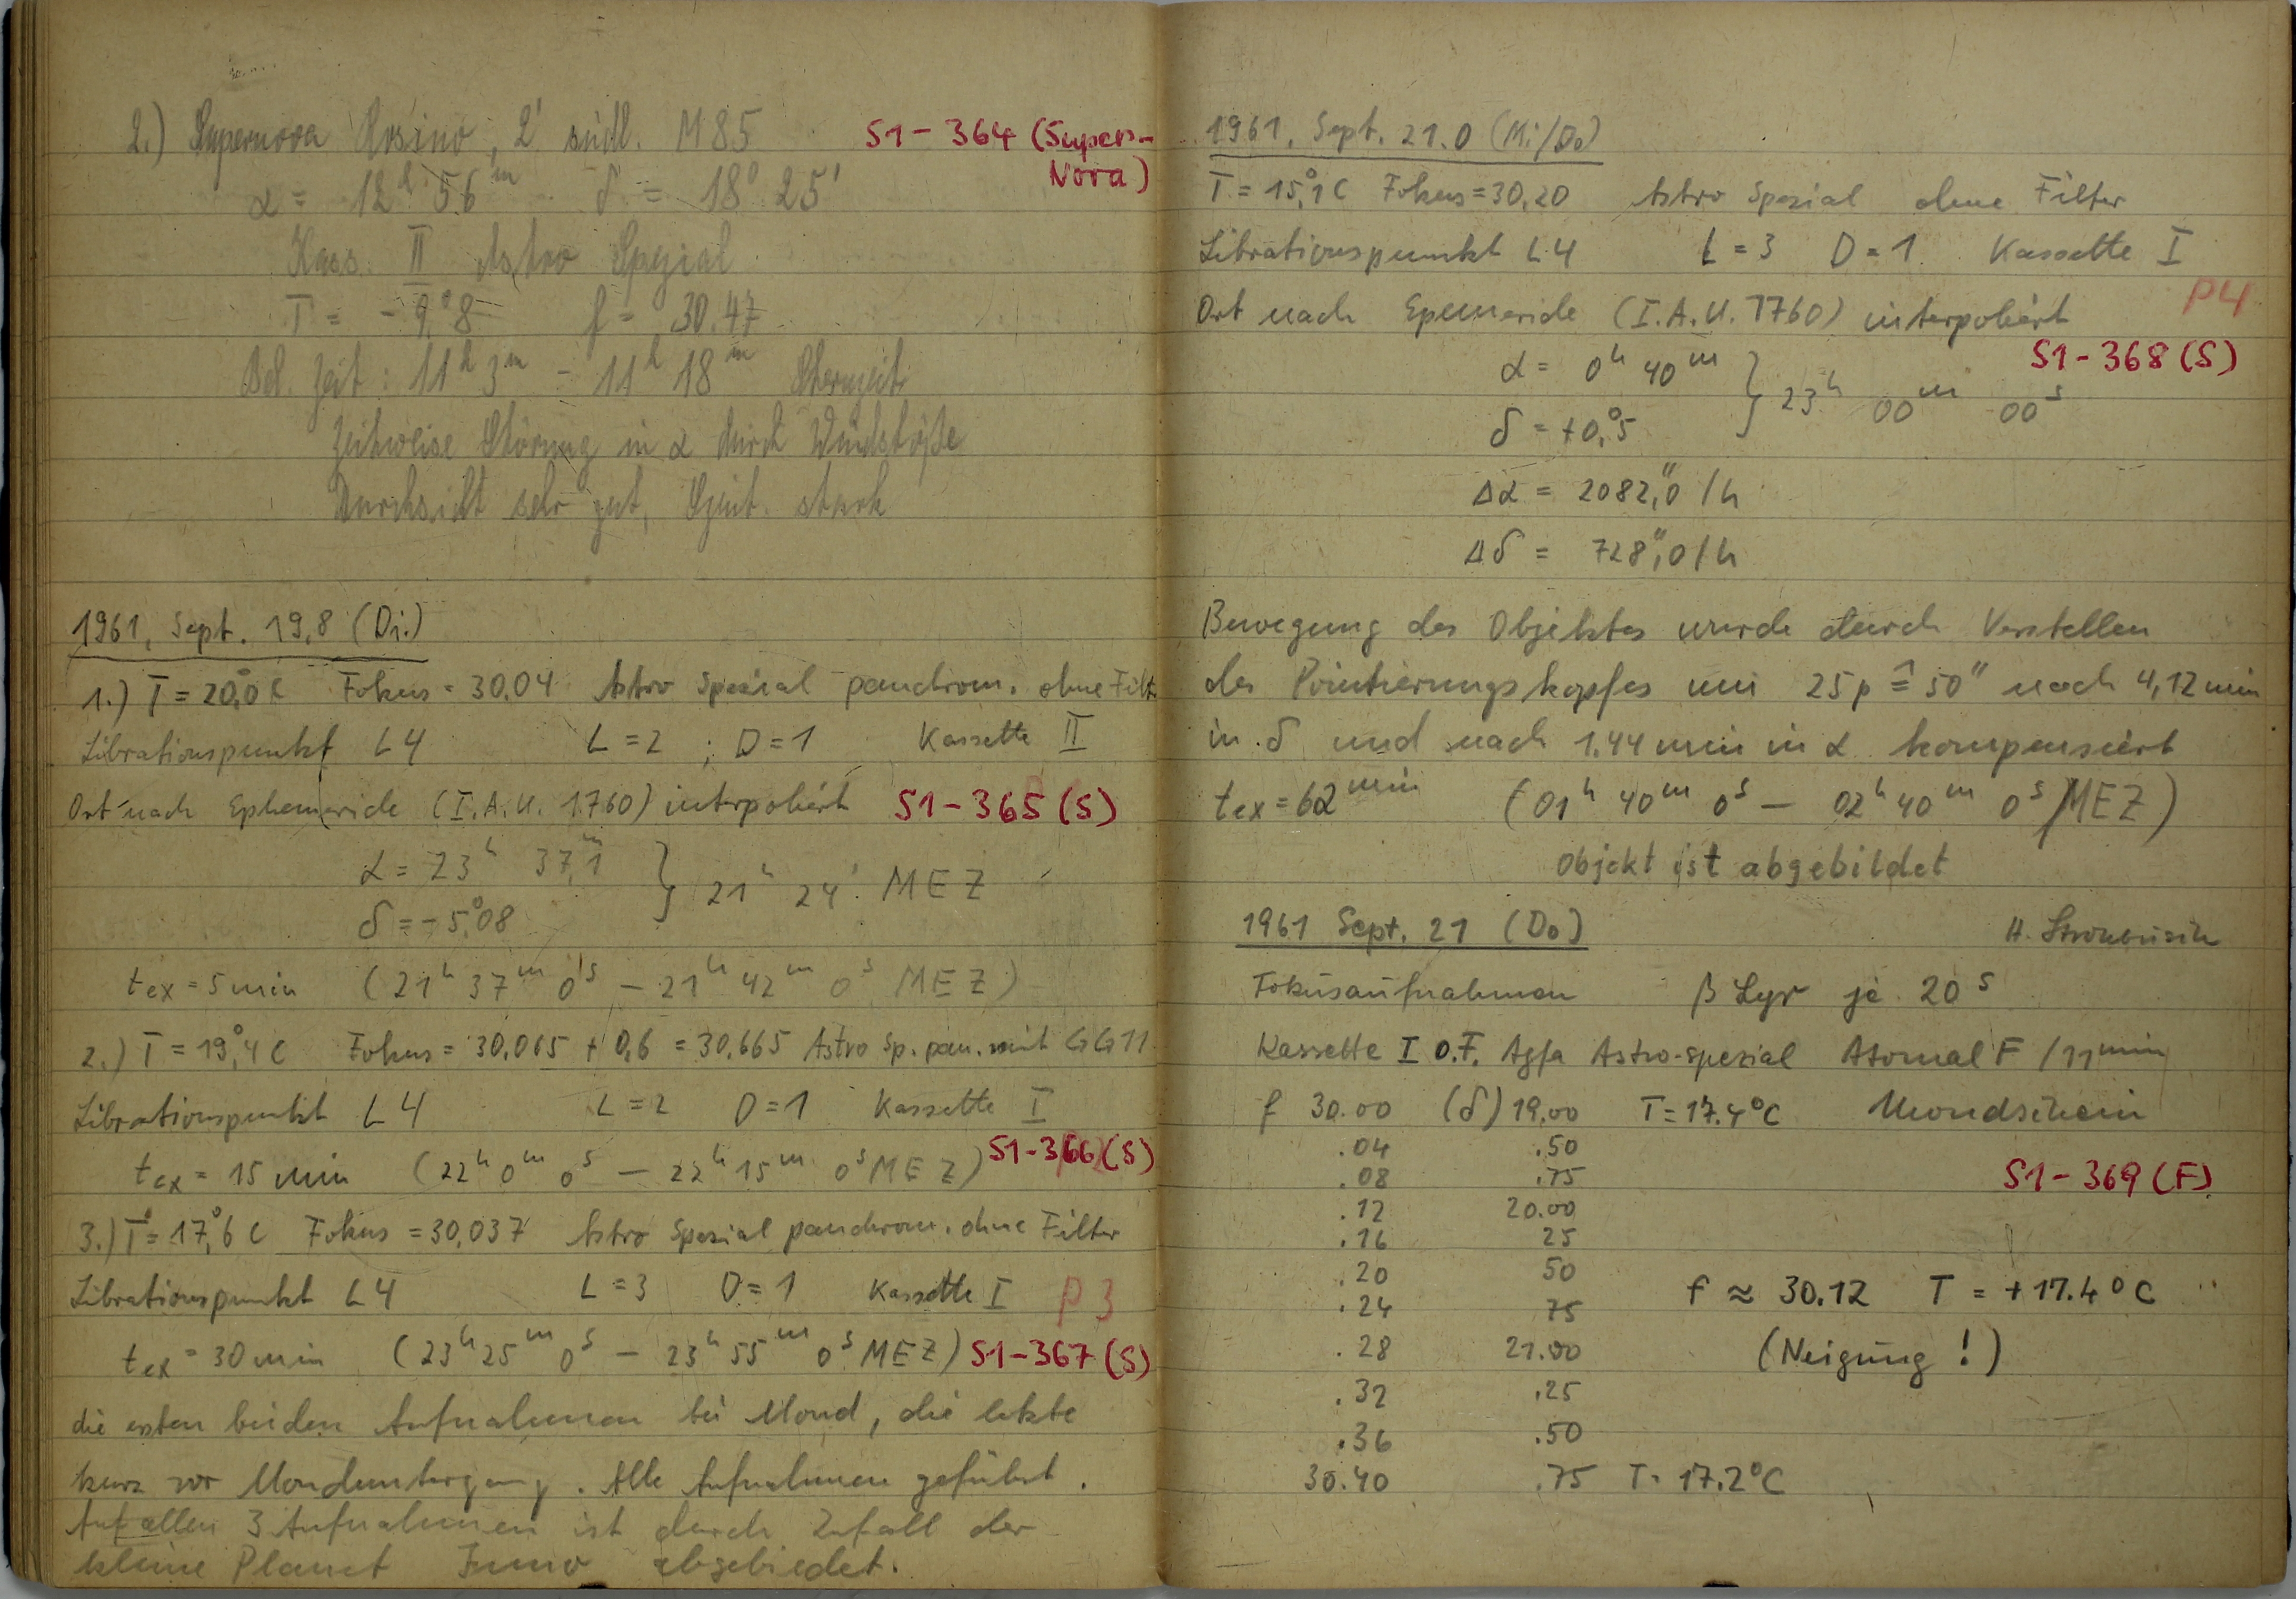 2.) Supernova Rosino, 2' südl. M85 S1-364 (Super-Nova)
α = 12h 56m δ = 18° 25'
Kass. II Astro Spezial
T = -9,°8 f = 30.47
Bel. Zeit: 11h 3m - 11h 18m Sternzeit
Zeitweise Störung in α durch Windstöße
Durchsicht sehr gut, Szint. stark
1961, Sept. 19,8 (Di.)
1.) T = 20,°0 C Fokus = 30,04 Astro Spezial panchrom. ohne Filt.
Librationspunkt L4 L = 2 ; D = 1 Kassette II
Ort nach Ephemeride (I.A.U. 1760) interpoliert S1-365 (S)
α = 23h 37,m1 } 21h 24' MEZ
δ = -5,°08
tex = 5 min (21h 37m 0s - 21h 42m 0s MEZ)
2.) T = 19,°4 C Fokus = 30,065 + 0,6 = 30,665 Astro Sp. pan. mit GG11
Librationspunkt L4 L = 2 D = 1 Kassette I
tex = 15 min (22h 0m 0s - 22h 15m 0s MEZ) S1-366 (S)
3.) T = 17,°6 C Fokus = 30,037 Astro Spezial panchrom. ohne Filter
Librationspunkt L4 L = 3 D = 1 Kassette I P3
tex = 30 min (23h 25m 0s - 23h 55m 0s MEZ) S1-367 (S)
die ersten beiden Aufnahmen bei Mond, die letzte
kurz vor Monduntergang. Alle Aufnahmen geführt.
Auf allen 3 Aufnahmen ist durch Zufall der
kleine Planet Juno abgebiedet.
1961, Sept. 21.0 (Mi/Do)
T = 15,°1 C Fokus = 30,20 Astro Spezial ohne Filter
Librationspunkt L4 L = 3 D = 1 Kassette I
Ort nach Epemeride (I.A.U. 1760) interpoliert P4
S1-368 (S)
α = 0h 40m } 23h 00m 00s
δ = +0,°5
Δα = 2082,"0 /h
Δδ = 728,"0 /h
Bewegung des Objektes wurde durch Verstellen
des Pointierungskopfes um 25p ≙ 50" nach 4,12 min
in δ und nach 1.44 min in α kompensiert
tex = 62 min (01h 40m 0s - 02h 40m 0s MEZ)
Objekt ist abgebildet
1961 Sept. 21 (Do) H. Strohbusch
Fokusaufnahmen β Lyr je 20s
Kassette I O.F. Agfa Astro-spezial Atomal F /11min
f 30.00 (δ) 19.00 T = 17.4°C Mondschein
.04 .50
.08 .75 S1-369 (F)
.12 20.00
.16 25
.20 50 f ≈ 30.12 T = +17.4°C
.24 75
.28 21.00 (Neigung !)
.32 .25
.36 .50
30.40 .75 T = 17.2°C